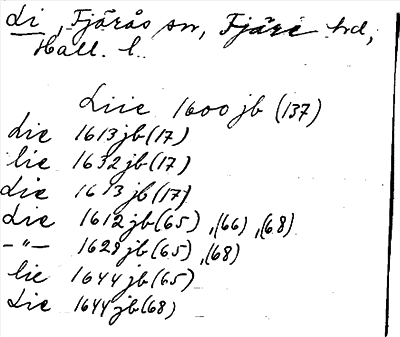 Li, Fjärås sn, Fjäre hd,
Hall. l.
Liie 1600 jb (137)
Lie 1613 jb (17)
lie 1632 jb (17)
Lie 1613 jb (17)
Lie 1612 jb (65), (66), (68)
—"— 1628 jb (65), (68)
lie 1644 jb (65)
Lie 1644 jb (68)